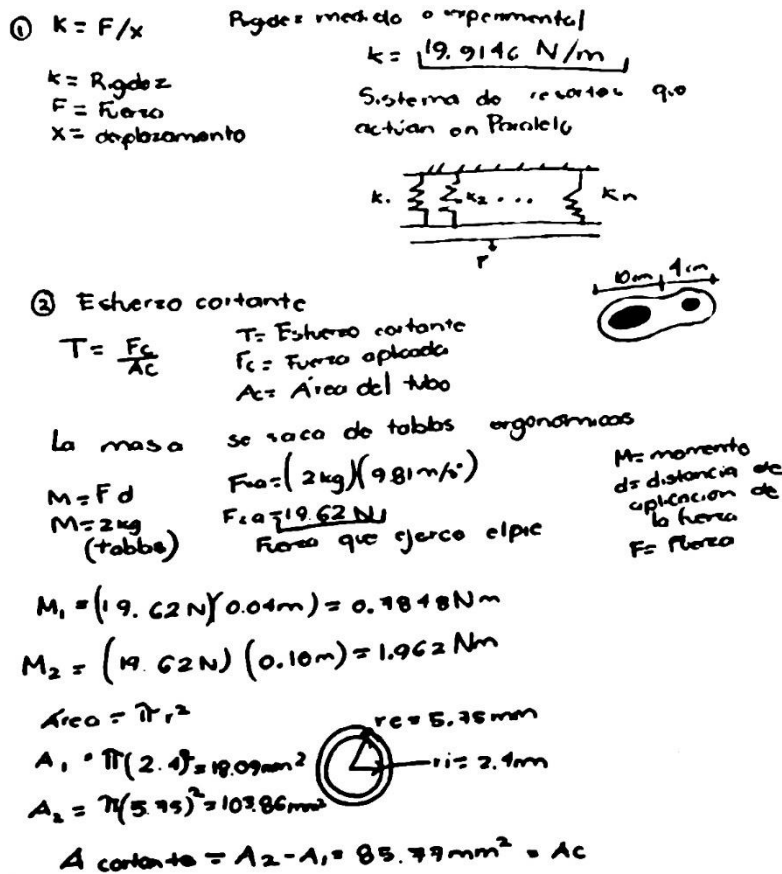 ① k = F/x
Rigidez medido o experimental
k = 19.9146 N/m
k = Rigidez
F = Fuerza
x = desplazamento
Sistema de resortes que
actúan en Paralelo
k₁ k₂ ... kn
F
② Esfuerzo cortante
10cm 4cm
T = Fc/Ac
T = Esfuerzo cortante
Fc = Fuerza aplicada
Ac = Área del tubo
La masa se saca de tablas ergonómicas
M = F d
M = 2 kg
(tablas)
= (2 kg)(9.81 m/s²)
= 19.62 N
Fuerza que ejerce el pie
M = momento
d = distancia de
aplicación de
la fuerza
F = Fuerza
M₁ = (19.62 N)(0.04m) = 0.7848 Nm
M₂ = (19.62 N) (0.10m) = 1.962 Nm
Área = π r²
re = 5.75 mm
A₁ = π(2.4)² = 18.09 mm²
ri = 2.4m
A₂ = π(5.75)² = 103.86 mm²
A cortante = A₂ - A₁ = 85.77 mm² = Ac